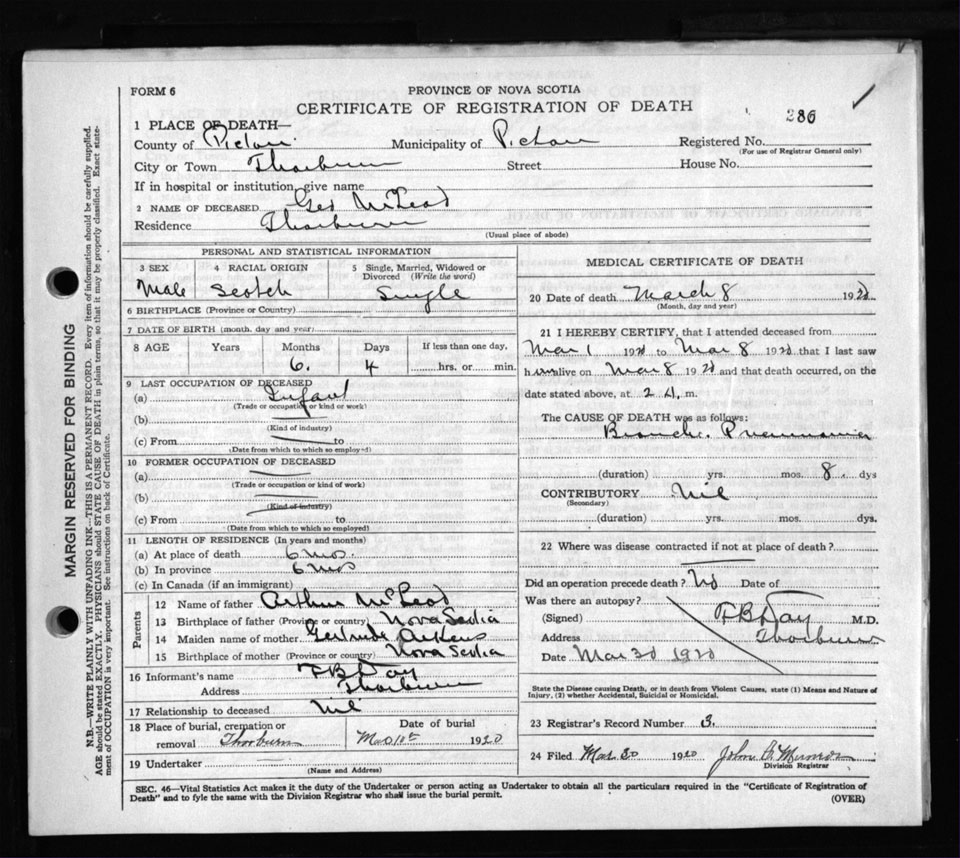 FORM 6
PROVINCE OF NOVA SCOTIA
CERTIFICATE OF REGISTRATION OF DEATH
286
1 PLACE OF DEATH—
County of Pictou Municipality of Pictou Registered No.
(For use of Registrar General only)
City or Town Thorburn Street House No.
If in hospital or institution, give name
2 NAME OF DECEASED Geo McLeod
Residence Thorburn
(Usual place of abode)
PERSONAL AND STATISTICAL INFORMATION
3 SEX 4 RACIAL ORIGIN 5 Single, Married, Widowed or Divorced (Write the word)
Male Scotch Single
6 BIRTHPLACE (Province or Country)
7 DATE OF BIRTH (month, day and year)
8 AGE Years Months Days If less than one day,
6. 4 hrs. or min.
9 LAST OCCUPATION OF DECEASED
(a) Infant
(Trade or occupation or kind of work)
(b)
(Kind of industry)
(c) From to
(Date from which to which so employed)
10 FORMER OCCUPATION OF DECEASED
(a)
(Trade or occupation or kind of work)
(b)
(Kind of industry)
(c) From to
(Date from which to which so employed)
11 LENGTH OF RESIDENCE (In years and months)
(a) At place of death 6 mos.
(b) In province 6 mos
(c) In Canada (if an immigrant)
Parents
12 Name of father Arthur McLeod
13 Birthplace of father (Province or country) Nova Scotia
14 Maiden name of mother Gertrude Aikens
15 Birthplace of mother (Province or country) Nova Scotia
16 Informant's name F B Day
Address Thorburn
17 Relationship to deceased Nil
18 Place of burial, cremation or Date of burial
removal Thorburn Mar 10th 1920
19 Undertaker
(Name and Address)
MEDICAL CERTIFICATE OF DEATH
20 Date of death March 8 1920
(Month, day and year)
21 I HEREBY CERTIFY, that I attended deceased from
Mar 1 1920 to Mar 8 1920 that I last saw
him alive on Mar 8 1920 and that death occurred, on the
date stated above, at 2 m.
The CAUSE OF DEATH was as follows:
Broncho Pneumonia
(duration) yrs. mos. 8 dys
CONTRIBUTORY Nil
(Secondary)
(duration) yrs. mos. dys.
22 Where was disease contracted if not at place of death?
Did an operation precede death? No Date of
Was there an autopsy?
(Signed) F B Day M.D.
Address Thorburn
Date Mar 30 1920
State the Disease causing Death, or in death from Violent Causes, state (1) Means and Nature of
Injury, (2) whether Accidental, Suicidal or Homicidal.
23 Registrar's Record Number 3.
24 Filed Mar 30 1920 John Munro
Division Registrar
SEC. 46—Vital Statistics Act makes it the duty of the Undertaker or person acting as Undertaker to obtain all the particulars required in the "Certificate of Registration of
Death" and to fyle the same with the Division Registrar who shall issue the burial permit.
(OVER)
MARGIN RESERVED FOR BINDING
N.B.—WRITE PLAINLY WITH UNFADING INK—THIS IS A PERMANENT RECORD. Every item of information should be carefully supplied.
AGE should be stated EXACTLY. PHYSICIANS should STATE CAUSE OF DEATH in plain terms, so that it may be properly classified. Exact state-
ment of OCCUPATION is very important. See instructions on back of Certificate.